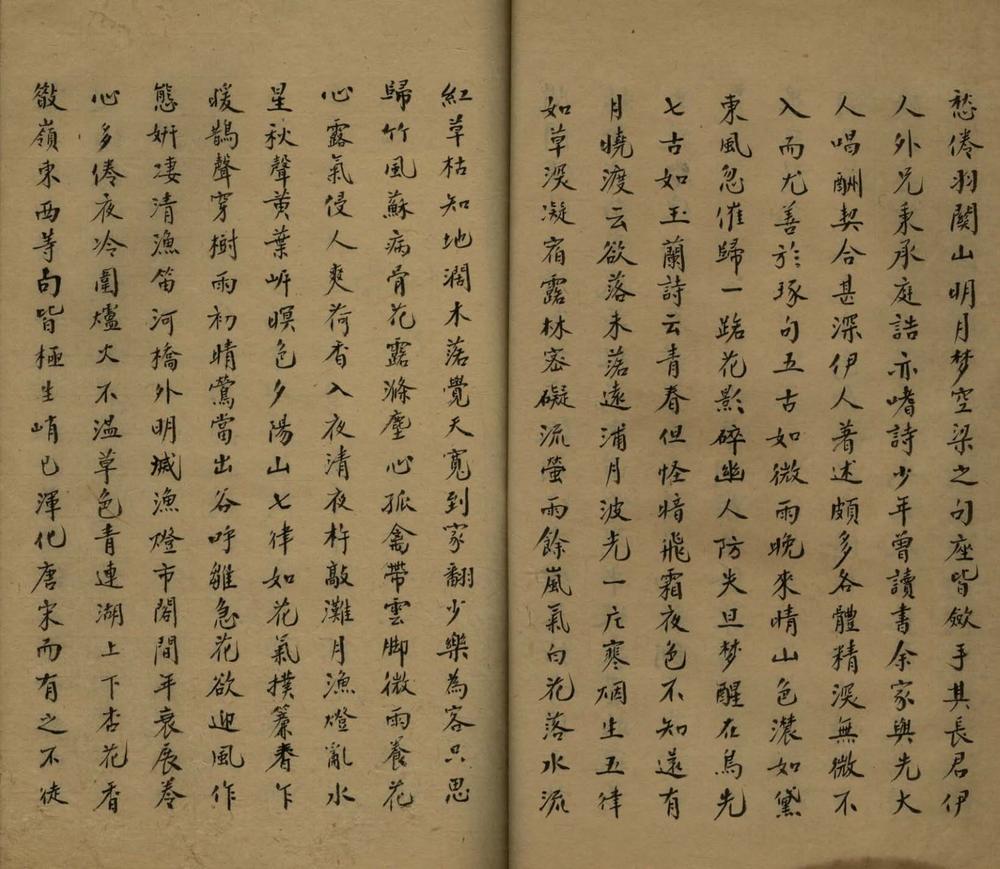 愁倦羽關山明月梦空梁之句座皆斂手其長君伊
人外兄秉承庭誥亦嗜詩少年曾讀書余家與先大
人唱酬契合甚深伊人著述頗多各體精深無微不
入而尤善於琢句五古如微雨晚來晴山色濃如黛
東風忽催歸一路花影碎幽人防失旦梦醒在鳥先
七古如玉蘭詩云青春但怪暗飛霜夜色不知遠有
月曉渡云欲落未落遠浦月波光一片寒烟生五律
如草深凝宿露林密礙流螢雨餘嵐氣白花落水流
紅草枯知地濶木落覺天寬到家翻少樂為客只思
歸竹風蘇病骨花露滌塵心孤禽帶雲脚微雨養花
心露氣侵人爽荷香入夜清夜杵敲灘月漁燈亂水
星秋聲黃葉岸暝色夕陽山七律如花氣撲簾春乍
暖鵲聲穿樹雨初晴鶯當出谷呼雛急花欲迎風作
態妍凄清漁笛河橋外明滅漁燈市閣間年衰展卷
心多倦夜冷圍爐火不温草色青連湖上下杏花香
散嶺東西等句皆極生峭已渾化唐宋而有之不徒